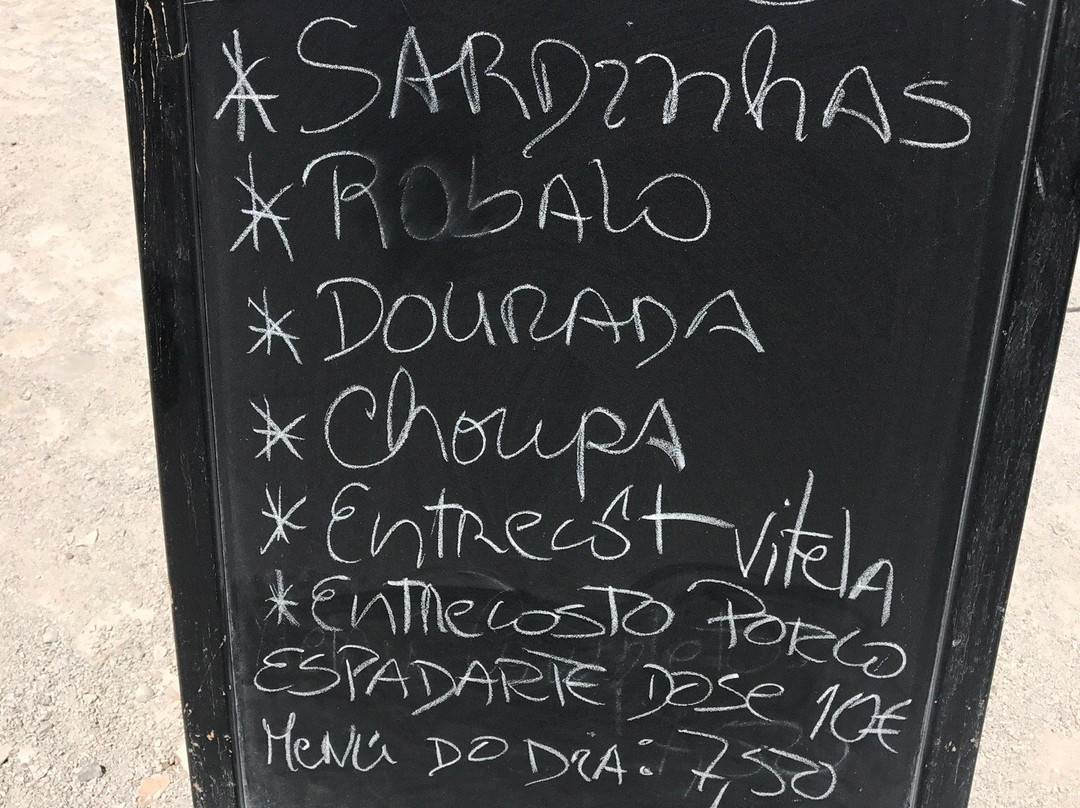 * SARDinhAS
* RObALO
* DOURADA
* ChoupA
* EntRecost vitelA
* EntRecosTO PORCO
ESPADARTE DOSe 10€
MENÚ DO DiA: 7,50